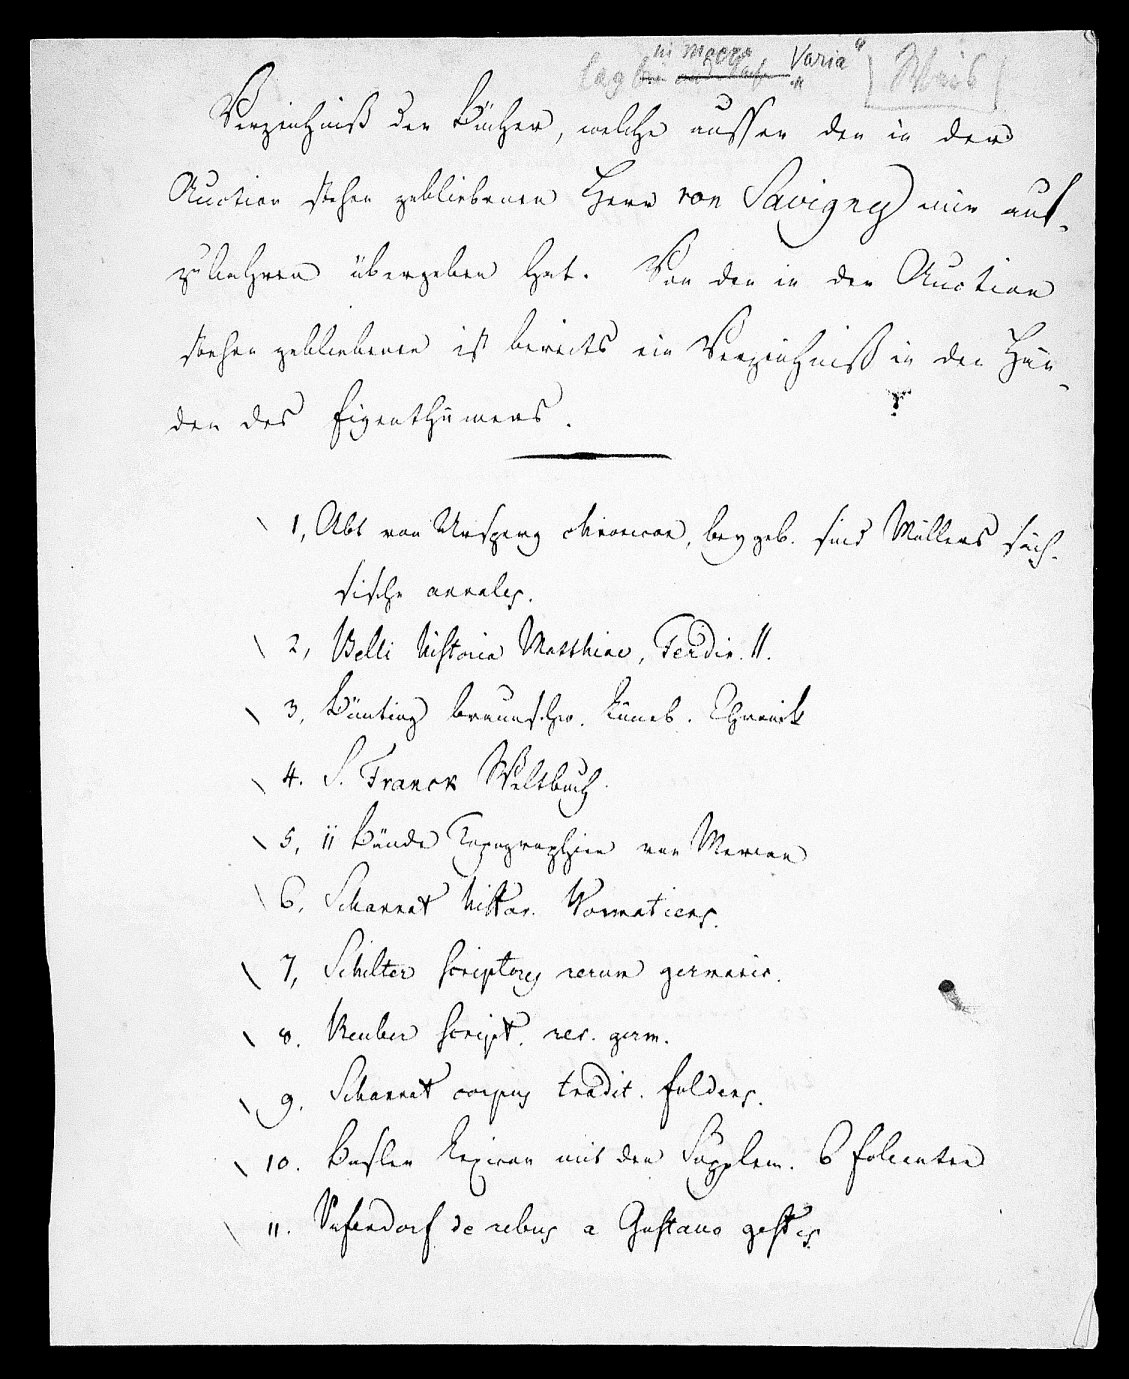 in Mappe
lag bei Varia"
Verzeichniß der Bücher, welche ausser den in der
Auction stehen gebliebenen Herr von Savigny mir auf-
zubewahren übergeben hat. Von den in der Auction
stehen gebliebenen ist bereits ein Verzeichniß in den Hän-
den des Eigenthümers.
1, Abt von Ursperg chronicon, beygeb. sind Müllers säch-
sische annales.
2, Belli historia Matthiae, Ferdin. II.
3, Bünting braunschw. Lüneb. Chronick
4. S. Franck Weltbuch.
5, 11 Bände Topographien von Merian
6, Schannat histor. Wormatiens.
7, Schilter scriptores rerum germanic.
8. Reuber script. rer. germ.
9. Schannat corpus tradit. fuldens.
10. Basler Lexicon mit den Supplem. 6 Folianten
11. Pufendorf de rebus a Gustavo gestis.